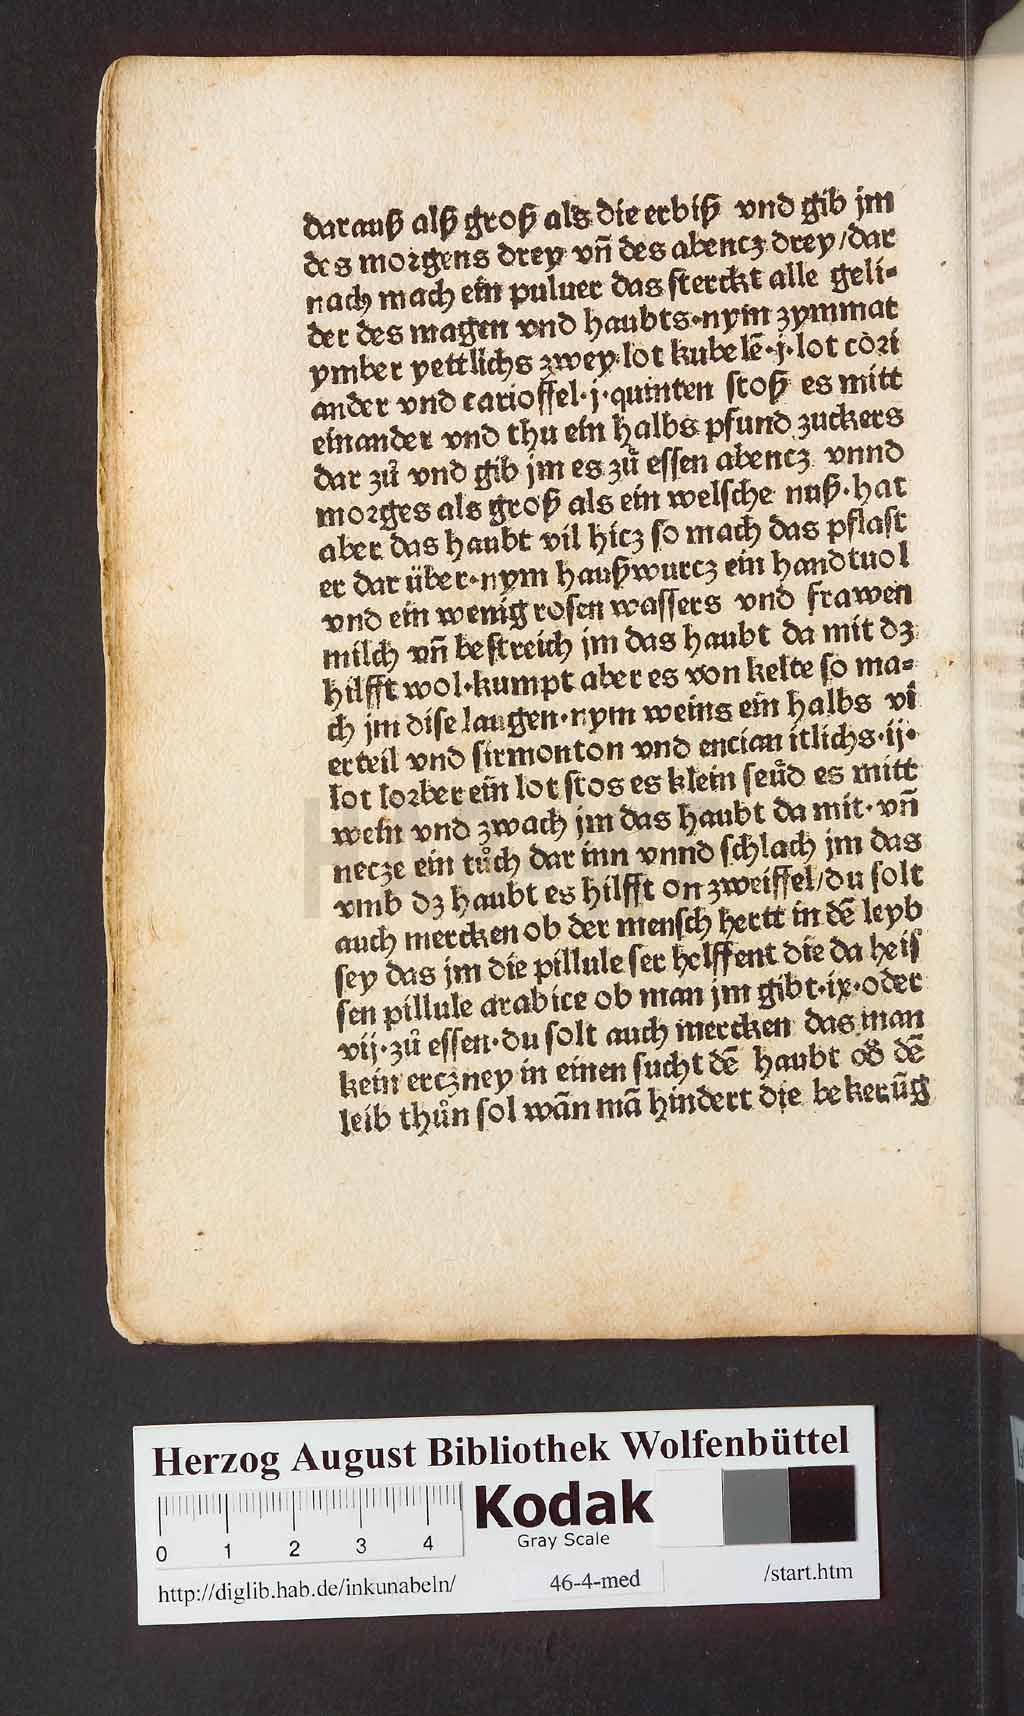 darauß alß groß als die erbiß vnd gib jm
des morgens drey vn̄ des abencz drey/dar
nach mach ein puluer das sterckt alle geli⸗
der des magen vnd haubts·nym zymmat
ymber yettlichs zwey lot kubelē·j·lot cori
ander vnd carioffel·j·quinten stoß es mitt
einander vnd thu ein halbs pfund zuckers
dar zuͦ vnd gib jm es zuͦ essen abencz vnnd
morges als groß als ein welsche nuß·hat
aber das haubt vil hicz so mach das pflast
er dar über·nym haußwurcz ein handtuol
vnd ein wenig rosen wassers vnd frawen
milch vn̄ bestreich jm das haubt da mit dz
hilfft wol·kumpt aber es von kelte so ma⸗
ch jm dise laugen·nym weins ein halbs vi
erteil vnd sirmonton vnd encian itlichs·ij·
lot lorber ein lot stos es klein seuͦd es mitt
wein vnd zwach jm das haubt da mit·vn̄
necze ein tuͦch dar inn vnnd schlach jm das
vmb dz haubt es hilfft on zweiffel/du solt
auch mercken ob der mensch hertt in dē leyb
sey das jm die pillule ser helffent die da heis
sen pillule arabice ob man jm gibt·ix·oder
vij·zuͦ essen·du solt auch mercken das man
kein erczney in einen sucht dē haubt od̄ dē
leib thuͦn sol wān mā hindert die bekerūg
Herzog August Bibliothek Wolfenbüttel
0 1 2 3 4
Kodak
Gray Scale
http://diglib.hab.de/inkunabeln/ 46-4-med /start.htm